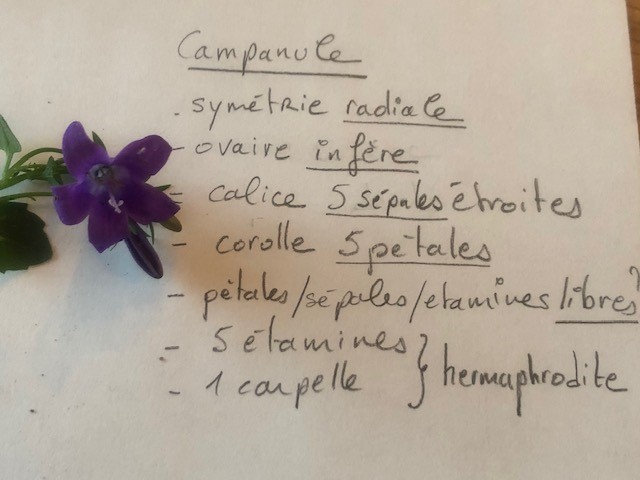 Campanule
. symétrie radiale
- ovaire infère
- calice 5 sépales étroites
- corolle 5 pétales
- pétales/sépales/etamines libres?
- 5 étamines
- 1 carpelle } hermaphrodite